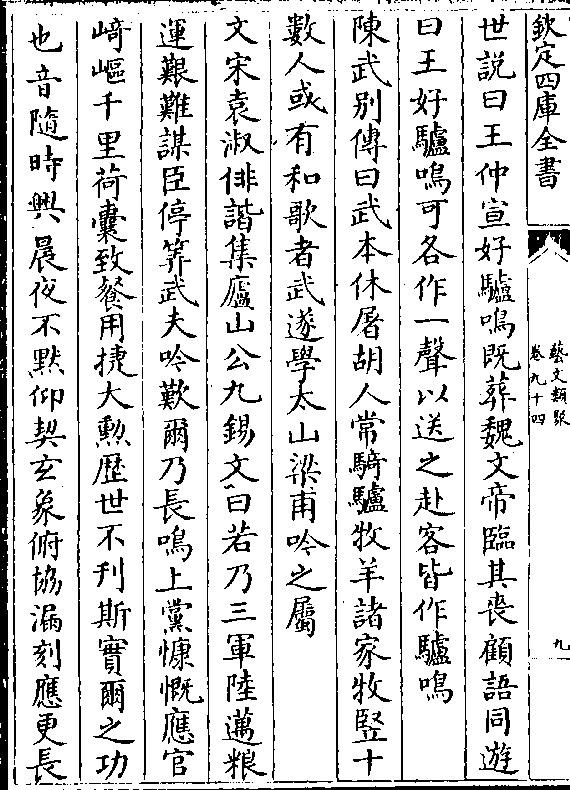 欽定四庫全書
藝文類聚
卷九十四
九
世說曰王仲宣好驢鳴既葬魏文帝臨其喪顧語同遊
曰王好驢鳴可各作一聲以送之赴客皆作驢鳴
陳武別傳曰武本休屠胡人常騎驢牧羊諸家牧豎十
數人或有和歌者武遂學太山梁甫吟之屬
文宋袁淑俳諧集廬山公九錫文曰若乃三軍陸邁粮
運艱難謀臣停筭武夫吟歎爾乃長鳴上黨慷慨應官
崎嶇千里荷囊致餐用捷大勲歴世不刋斯實爾之功
也音隨時興晨夜不默仰契玄象俯協漏刻應更長